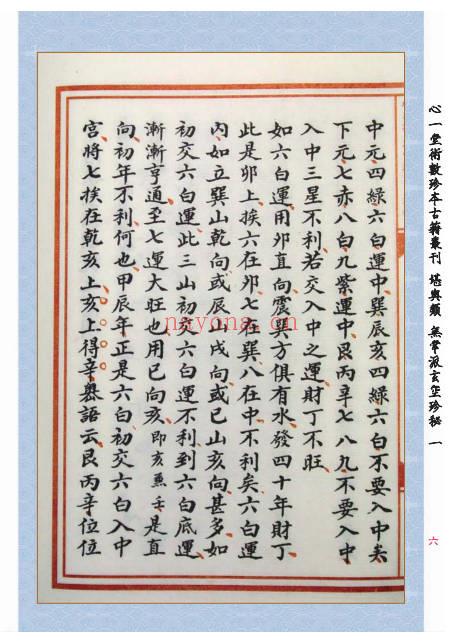 心一堂術數珍本古籍叢刊 堪輿類 無常派玄空珍秘 一
六
中元四綠六白運中巽辰亥四綠六白不要入中矣
下元七赤八白九紫運中艮丙辛七八九不要入中
入中三星不利若交入中之運財丁不旺
如六白運用夘直向震巽方俱有水發四十年財丁
此是夘上挨六在夘七在巽八在中不利矣六白運
內如立巽山乾向或辰山戌向或巳山亥向甚多如
初交六白運此三山初交六白運不利到六白底運
漸漸亨通至七運大旺也用巳向亥即亥兼壬是直
向初年不利何也甲辰年正是六白初交六白入中
宮將七挨在乾亥上亥上得辛奧語云艮丙辛位位
nayona.cn